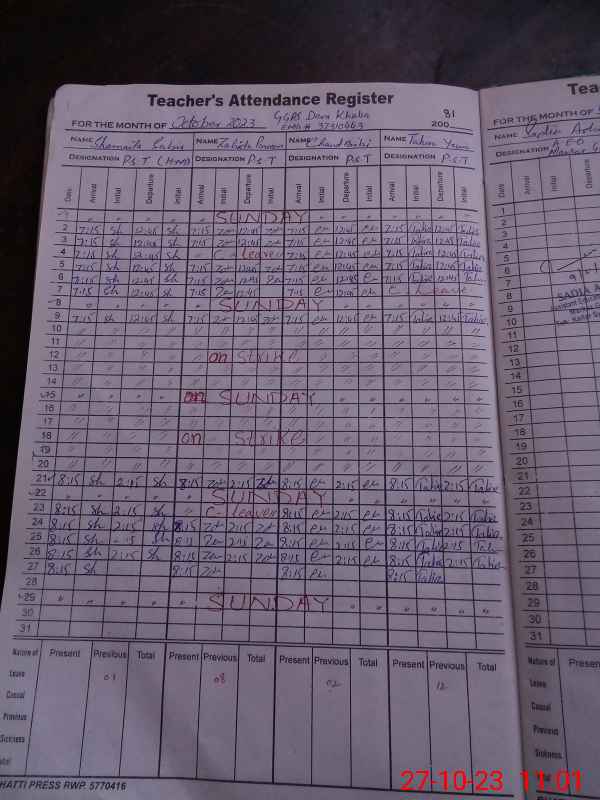 Teacher's Attendance Register
GGPS Dera Khalsa 81
FOR THE MONTH OF October 2023 EMIS # 37310463 200
NAME Shamaila NAME Zahida Parveen NAME Chand Bibi NAME Tahira
DESIGNATION P.S.T (H/M) DESIGNATION P.S.T DESIGNATION P.S.T DESIGNATION P.S.T
Date Arrival Initial Departure Initial Arrival Initial Departure Initial Arrival Initial Departure Initial Arrival Initial Departure Initial
1 SUNDAY
2 7:15 Sh 12:45 Sh 7:15 Za 12:45 Za 7:15 er 12:45 er 7:15 Tahir 12:45 Tahir
3 7:15 Sh 12:45 Sh 7:15 Za 12:45 Za 7:15 er 12:45 er 7:15 Tahir 12:45 Tahir
4 7:15 Sh 12:45 Sh C-leave 7:15 er 12:45 er 7:15 Tahir 12:45 Tahir
5 7:15 Sh 12:45 Sh 7:15 Za 12:45 Za 7:15 er 12:45 er 7:15 Tahir 12:45 Tahir
6 7:15 Sh 12:45 Sh 7:15 Za 12:45 Za 7:15 er 12:45 er 7:15 Tahir 12:45
7 7:15 Sh 12:45 Sh 7:15 Za 12:45 7:15 er 12:45 er C leave
8 SUNDAY
9 7:15 Sh 12:45 Sh 7:15 Za 12:45 Za 7:15 er 12:45 er 7:15 Tahir 12:45 Tahir
10
11
12 on Strike
13
14
15 on SUNDAY
16
17
18 on Strike
19
20
21 8:15 Sh 2:15 Sh 8:15 Za 2:15 Za 8:15 er 2:15 er 8:15 Tahir 2:15 Tahir
22 SUNDAY
23 8:15 Sh 2:15 Sh C-leave 8:15 er 2:15 er 8:15 Tahir 2:15 Tahir
24 8:15 Sh 2:15 Sh 8:15 Za 2:15 Za 8:15 er 2:15 er 8:15 Tahir 2:15 Tahir
25 8:15 Sh 2:15 Sh 8:15 Za 2:15 Za 8:15 er 2:15 er 8:15 Tahir 2:15
26 8:15 Sh 2:15 Sh 8:15 Za 2:15 Za 8:15 er 2:15 er 8:15 Tahir 2:15 Tahir
27 8:15 Sh 8:15 Za 8:15 er 8:15 Tahir
28
29 SUNDAY
30
31
Nature of Present Previous Total Present Previous Total Present Previous Total Present Previous Total
Leave 01 08 02 12
Casual
Previous
Sickness
Total
HATTI PRESS RWP. 5770416
Tea
FOR THE MONTH OF
NAME Sadia
DESIGNATION A E O
Date Arrival Initial
1
2
3
4
5
6
7
8
SADIA A
9
10
11
12
13
14
15
16
17
18
19
20
21
22
23
24
25
26
27
28
29
30
31
Nature of Present
Leave
Casual
Previous
Sickness
27-10-23 11:01